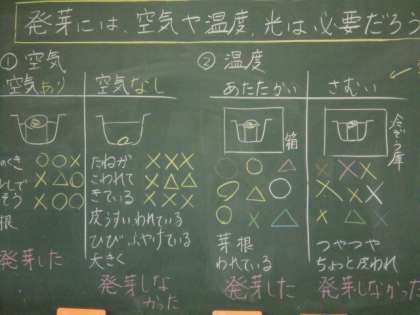 発芽には、空気や温度、光は必要だろう
① 空気
空気あり
空気なし
のくき
しんで
そう
根
発芽した
たねが
こわれて
きている
皮うすい、われている
ひび、ふやけている
大きく
発芽しな
かった
② 温度
あたたかい
さむい
箱
冷ぞう庫
芽 根
われている
発芽した
つやつや
ちょっと皮われ
発芽しなかった